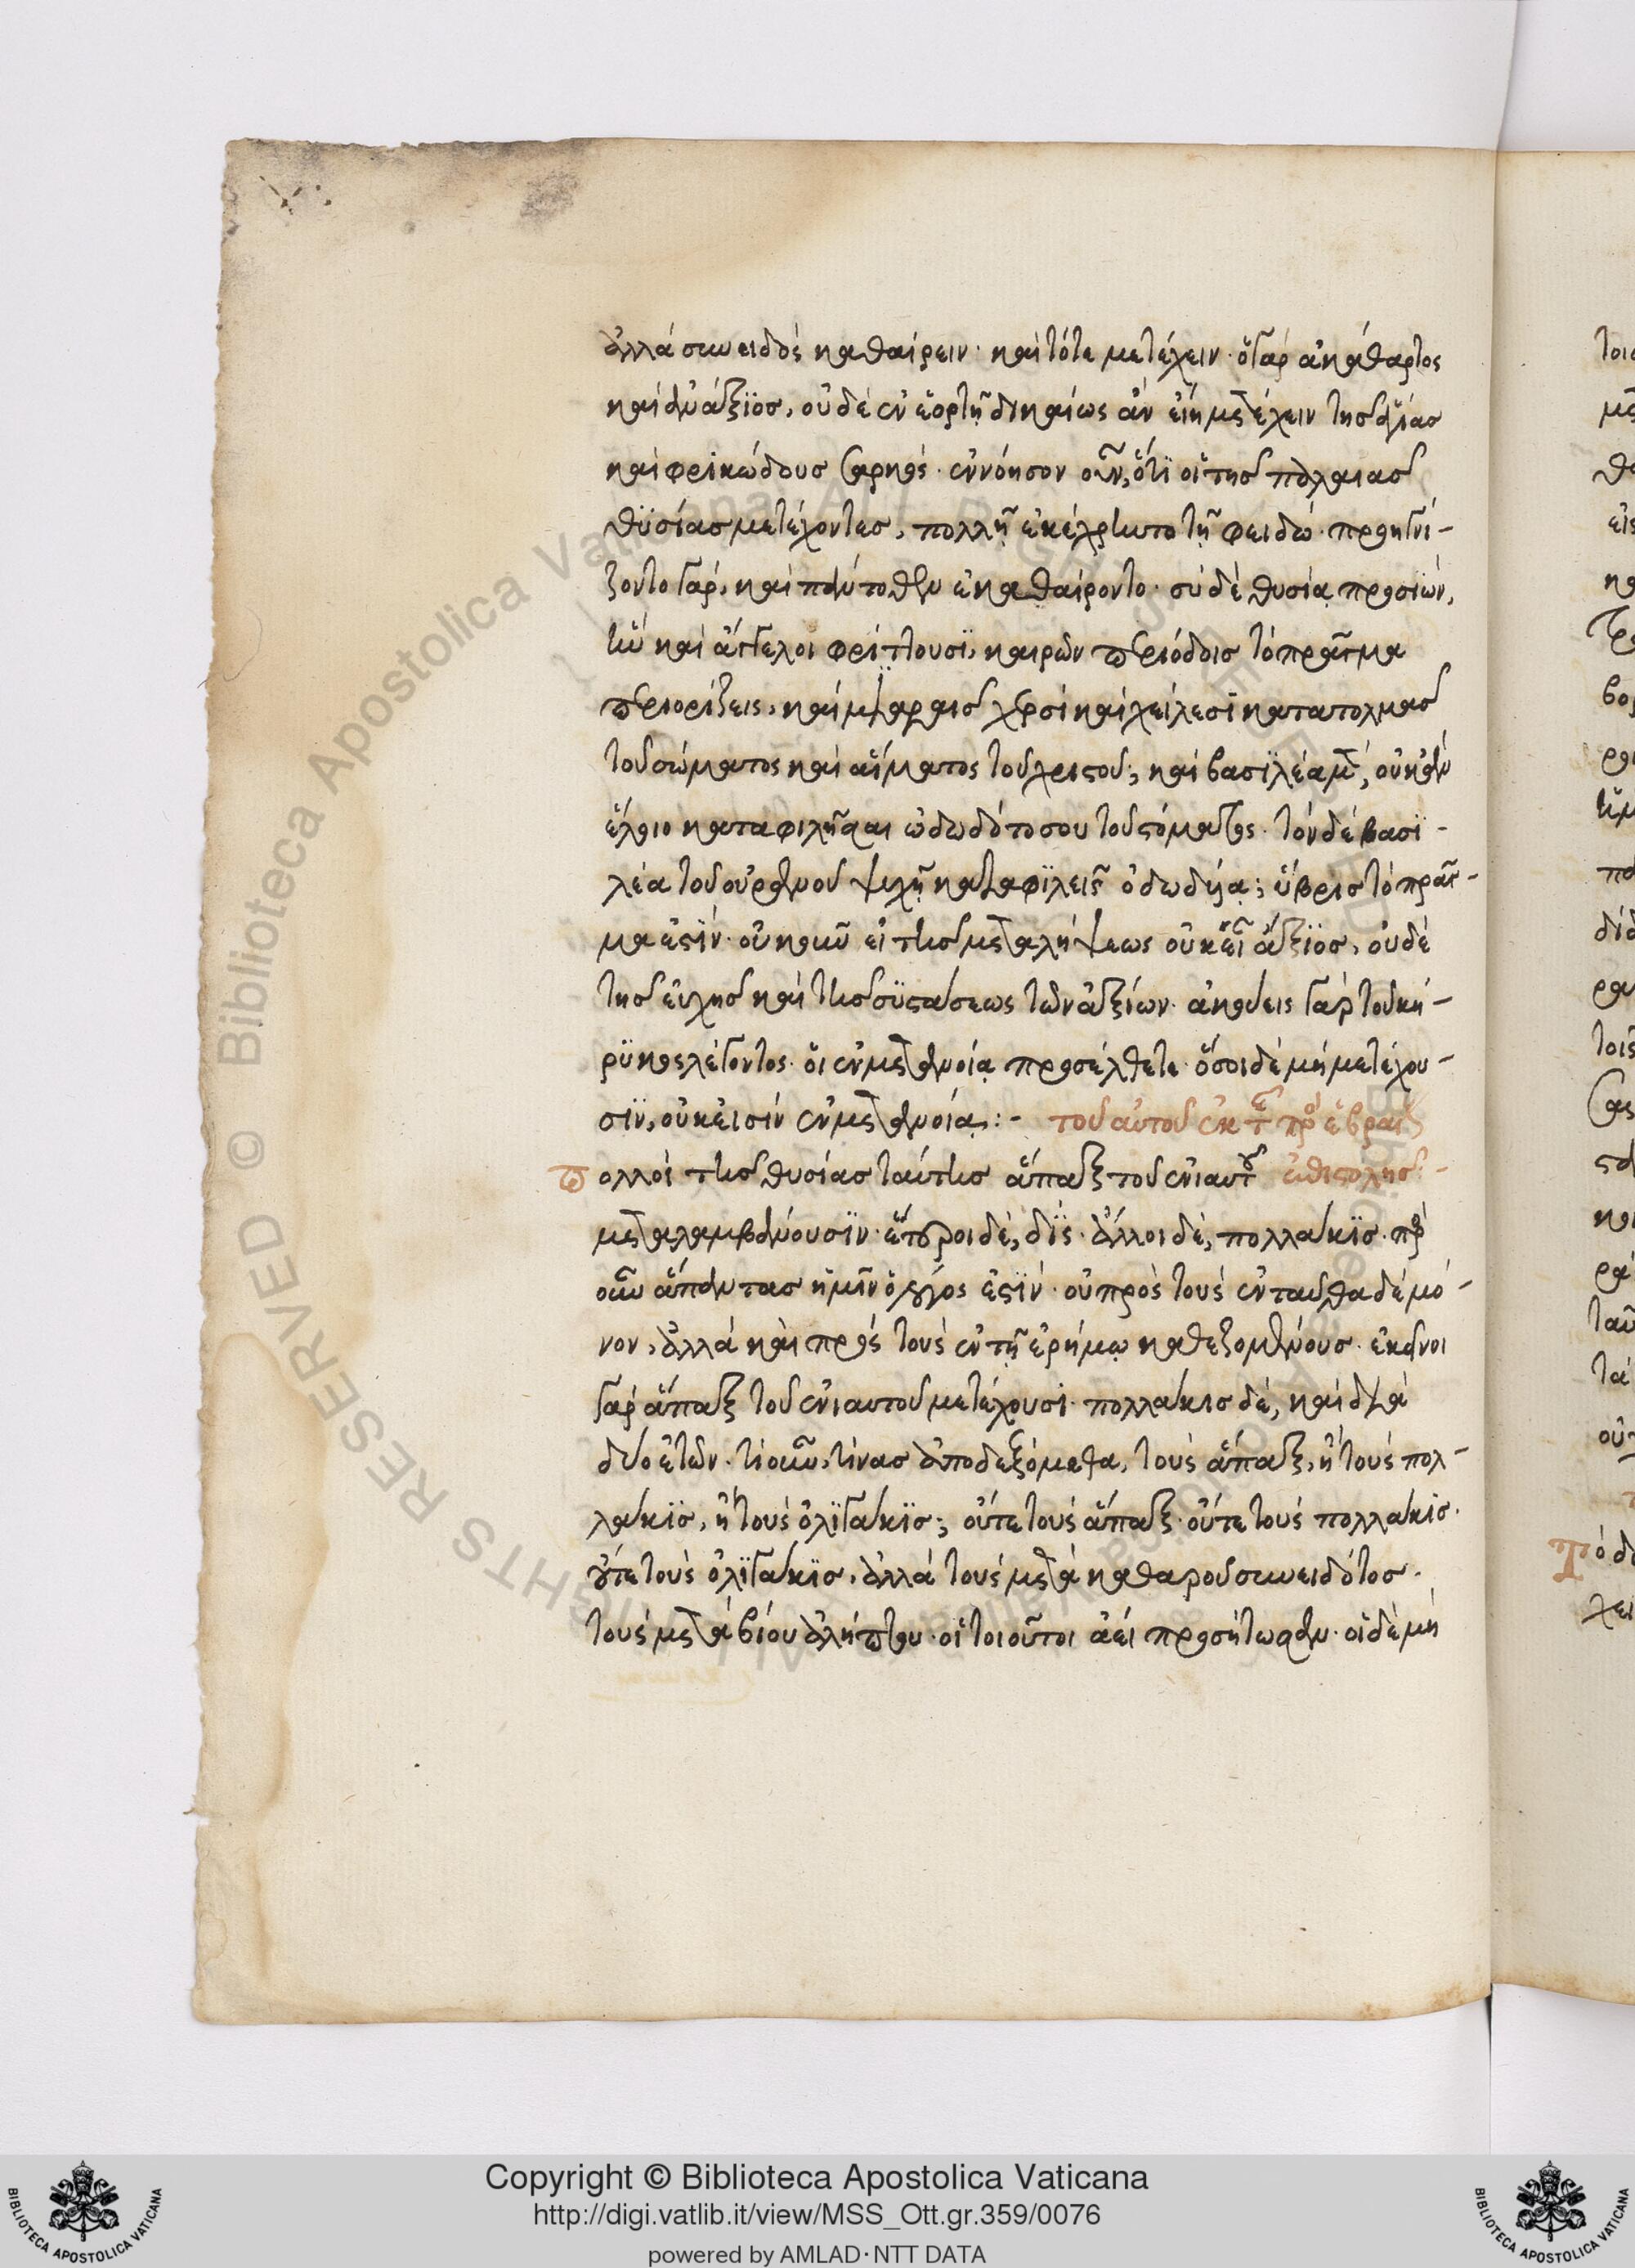 ἀλλὰ συνειδὸς καθαίρειν· καὶ τότε μετέχειν· ὁ γὰρ ἀκάθαρτος
καὶ ἀνάξϊος, οὐδὲ ἐν ἑορτῇ δικαίως ἂν εἴη μετέχειν τῆς ἁγίας
καὶ φρικώδους σαρκός· ἐννόησον οὖν, ὅτϊ οἱ τῆς παλαιᾶς
θϋσίας μετέχοντες, πολλῇ ἐκέχρηντο τῇ φειδώ· προηγνί-
ζοντο γὰρ, καὶ πάντοθεν ἐκαθαίροντο· σὺ δὲ θυσίᾳ προσϊών,
ἣν καὶ ἄγγελοι φρίττουσϊ, καιρῶν περιόδοις τὸ πρᾶγμα
περιορίζεις, καὶ μιαραῖς χερσὶ καὶ χείλεσϊ κατατολμᾶς
τοῦ σώματος καὶ αἵματος τοῦ χριστοῦ; καὶ βασϊλέα μὲν, οὐκ ἂν
ἕλοιο καταφιλῆσαι ὀδωδότο σου τοῦ στόματος· τὸν δὲ βασϊ-
λέα τοῦ οὐρανοῦ ψυχῇ καταφϊλεῖς ὀδωδυίᾳ; ὕβρις τὸ πρᾶγ-
μα ἐστϊν· οὐκοῦν εἰ τῆς μεταλήψεως οὐκ εἶ ἄξϊος, οὐδὲ
τῆς εὐχῆς καὶ τῆς σϋστάσεως τῶν ἀξίων· ἀκούεις γὰρ τοῦ κή-
ρϋκος λέγοντος· οἱ ἐν μετανοίᾳ προσέλθετε· ὅσοι δὲ μὴ μετέχου-
σϊν, οὐκ εἰσὶν ἐν μετανοίᾳ:- τοῦ αὐτοῦ ἐκ τῆς πρὸς ἑβραί
πολλοὶ τῆς θυσίας ταύτης ἅπαξ τοῦ ἐνιαυτοῦ ἐπιστολῆς·-
μεταλαμβάνουσϊν· ἕτεροι δὲ, δϊς· ἄλλοι δὲ, πολλάκϊς· πρὸς
οὖν ἅπαντας ἡμῖν ὁ λόγος ἐστϊν· οὐ πρὸς τοὺς ἐνταῦθα δὲ μό-
νον, ἀλλὰ καὶ πρὸς τοὺς ἐν τῇ ἐρήμῳ καθεζομένους· ἐκεῖνοι
γὰρ ἅπαξ τοῦ ἐνιαυτοῦ μετέχουσϊ· πολλάκις δὲ, καὶ διὰ
δύο ἐτῶν· τί οὖν, τίνας ἀποδεξόμεθα, τοὺς ἅπαξ, ἢ τοὺς πολ-
λάκϊς, ἢ τοὺς ὀλϊγάκϊς; οὔτε τοὺς ἅπαξ· οὔτε τοὺς πολλάκϊς·
οὔτε τοὺς ὀλϊγάκϊς, ἀλλὰ τοὺς μετὰ καθαροῦ συνειδότος·
τοὺς μετὰ βίου ἀλήπτου· οἱ τοιοῦτοι ἀεὶ προσήτωσαν· οἱ δὲ μὴ
Copyright © Biblioteca Apostolica Vaticana
http://digi.vatlib.it/view/MSS_Ott.gr.359/0076
powered by AMLAD·NTT DATA